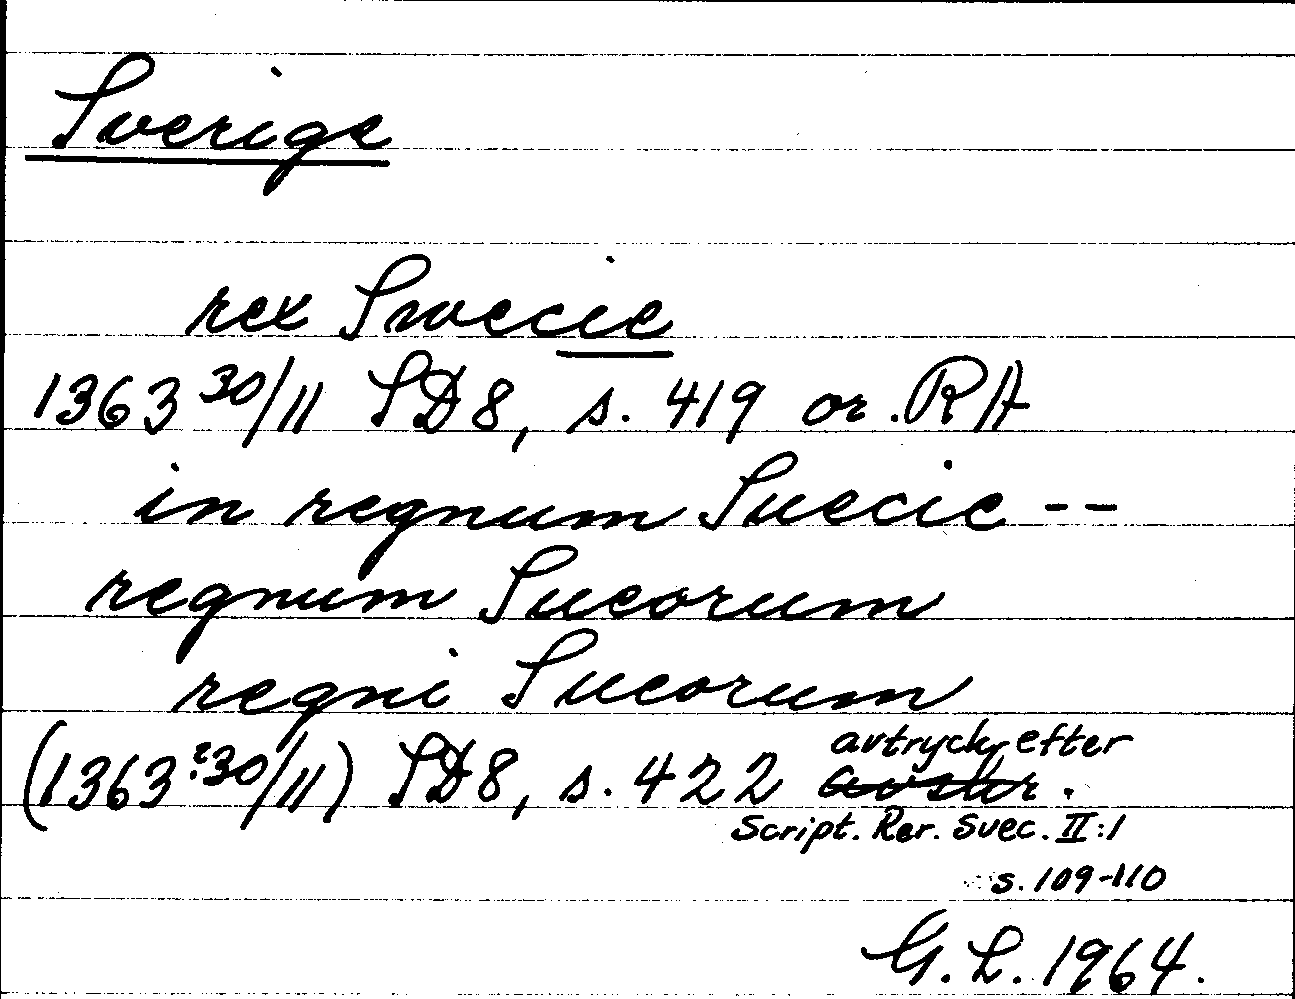 Sverige
rex Swecie
1363 30/11 SD8, s. 419 or. RA
in regnum Suecie --
regnum Sueorum
regni Sueorum
(1363 ?30/11) SD8, s. 422 avtryck efter
Script. Rer. Svec. II:1
s. 109-110
G. L. 1964.